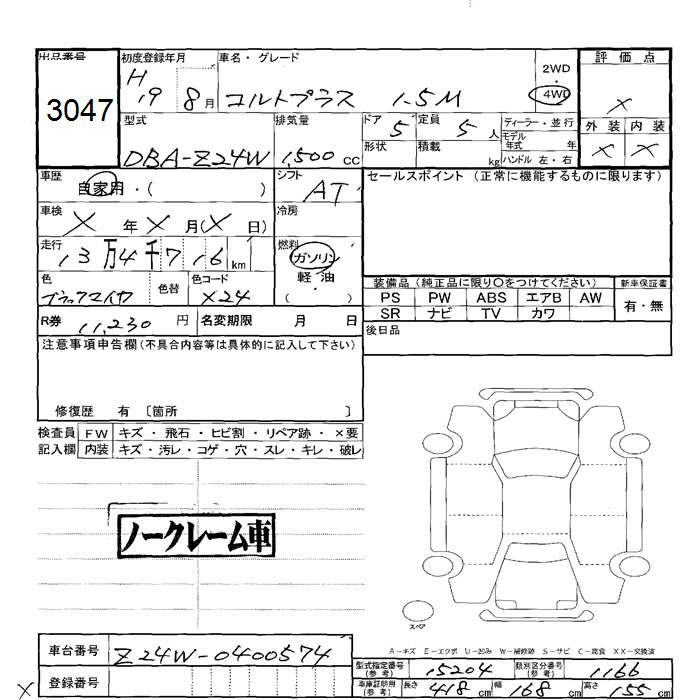 出品番号
3047
初度登録年月
H 19 8月
車名・グレード
コルトプラス 1.5M
2WD
・
4WD
評価点
×
外装 内装
× ×
型式
DBA-Z24W
排気量
1,500 cc
ドア 5
定員 5人
形状
積載 kg
ディーラー・並行
モデル年式 年
ハンドル 左・右
車歴
自家用・( )
シフト
AT
車検
× 年 × 月(× 日)
冷房
走行
13万4千716 km
燃料
ガソリン
軽・油
色
色替
色コード
X24
R券 11,230 円
名変期限 月 日
セールスポイント (正常に機能するものに限ります)
装備品(純正品に限り○をつけてください)
新車保証書
PS PW ABS エアB AW
SR ナビ TV カワ
有・無
後日品
注意事項申告欄(不具合内容等は具体的に記入して下さい)
修復歴 有 〔箇所 〕
検査員 FW キズ・飛石・ヒビ割・リペア跡・×要
記入欄 内装 キズ・汚レ・コゲ・穴・スレ・キレ・破レ
ノークレーム車
スペア
A-キズ E-エクボ U-凹み W-補修跡 S-サビ C-腐食 XX-交換済
車台番号 Z24W-0400574
登録番号
×
型式指定番号(参考) 15204
類別区分番号(参考) 1166
車庫証明用(参考) 長さ 418 cm 幅 168 cm 高さ 155 cm